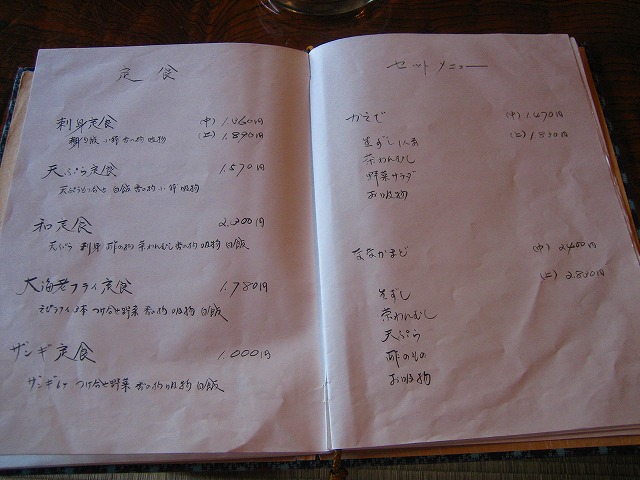 定食
刺身定食 (中) 1.260円
(上) 1.890円
白飯 小鉢 香の物 吸物
天ぷら定食 1.570円
天ぷら 白飯 香の物 小鉢 吸物
和定食 2.200円
天ぷら 刺身 酢の物 茶わんむし 香の物 吸物 白飯
大海老フライ定食 1.780円
えびフライ3本 つけ合せ野菜 香の物 吸物 白飯
ザンギ定食 1.000円
ザンギ つけ合せ野菜 香の物 吸物 白飯
セットメニュー
かえで (中) 1.470円
(上) 1.830円
生ずし1人前
茶わんむし
野菜サラダ
お吸物
ななかまど (中) 2.400円
(上) 2.830円
生ずし
茶わんむし
天ぷら
酢のもの
お吸物